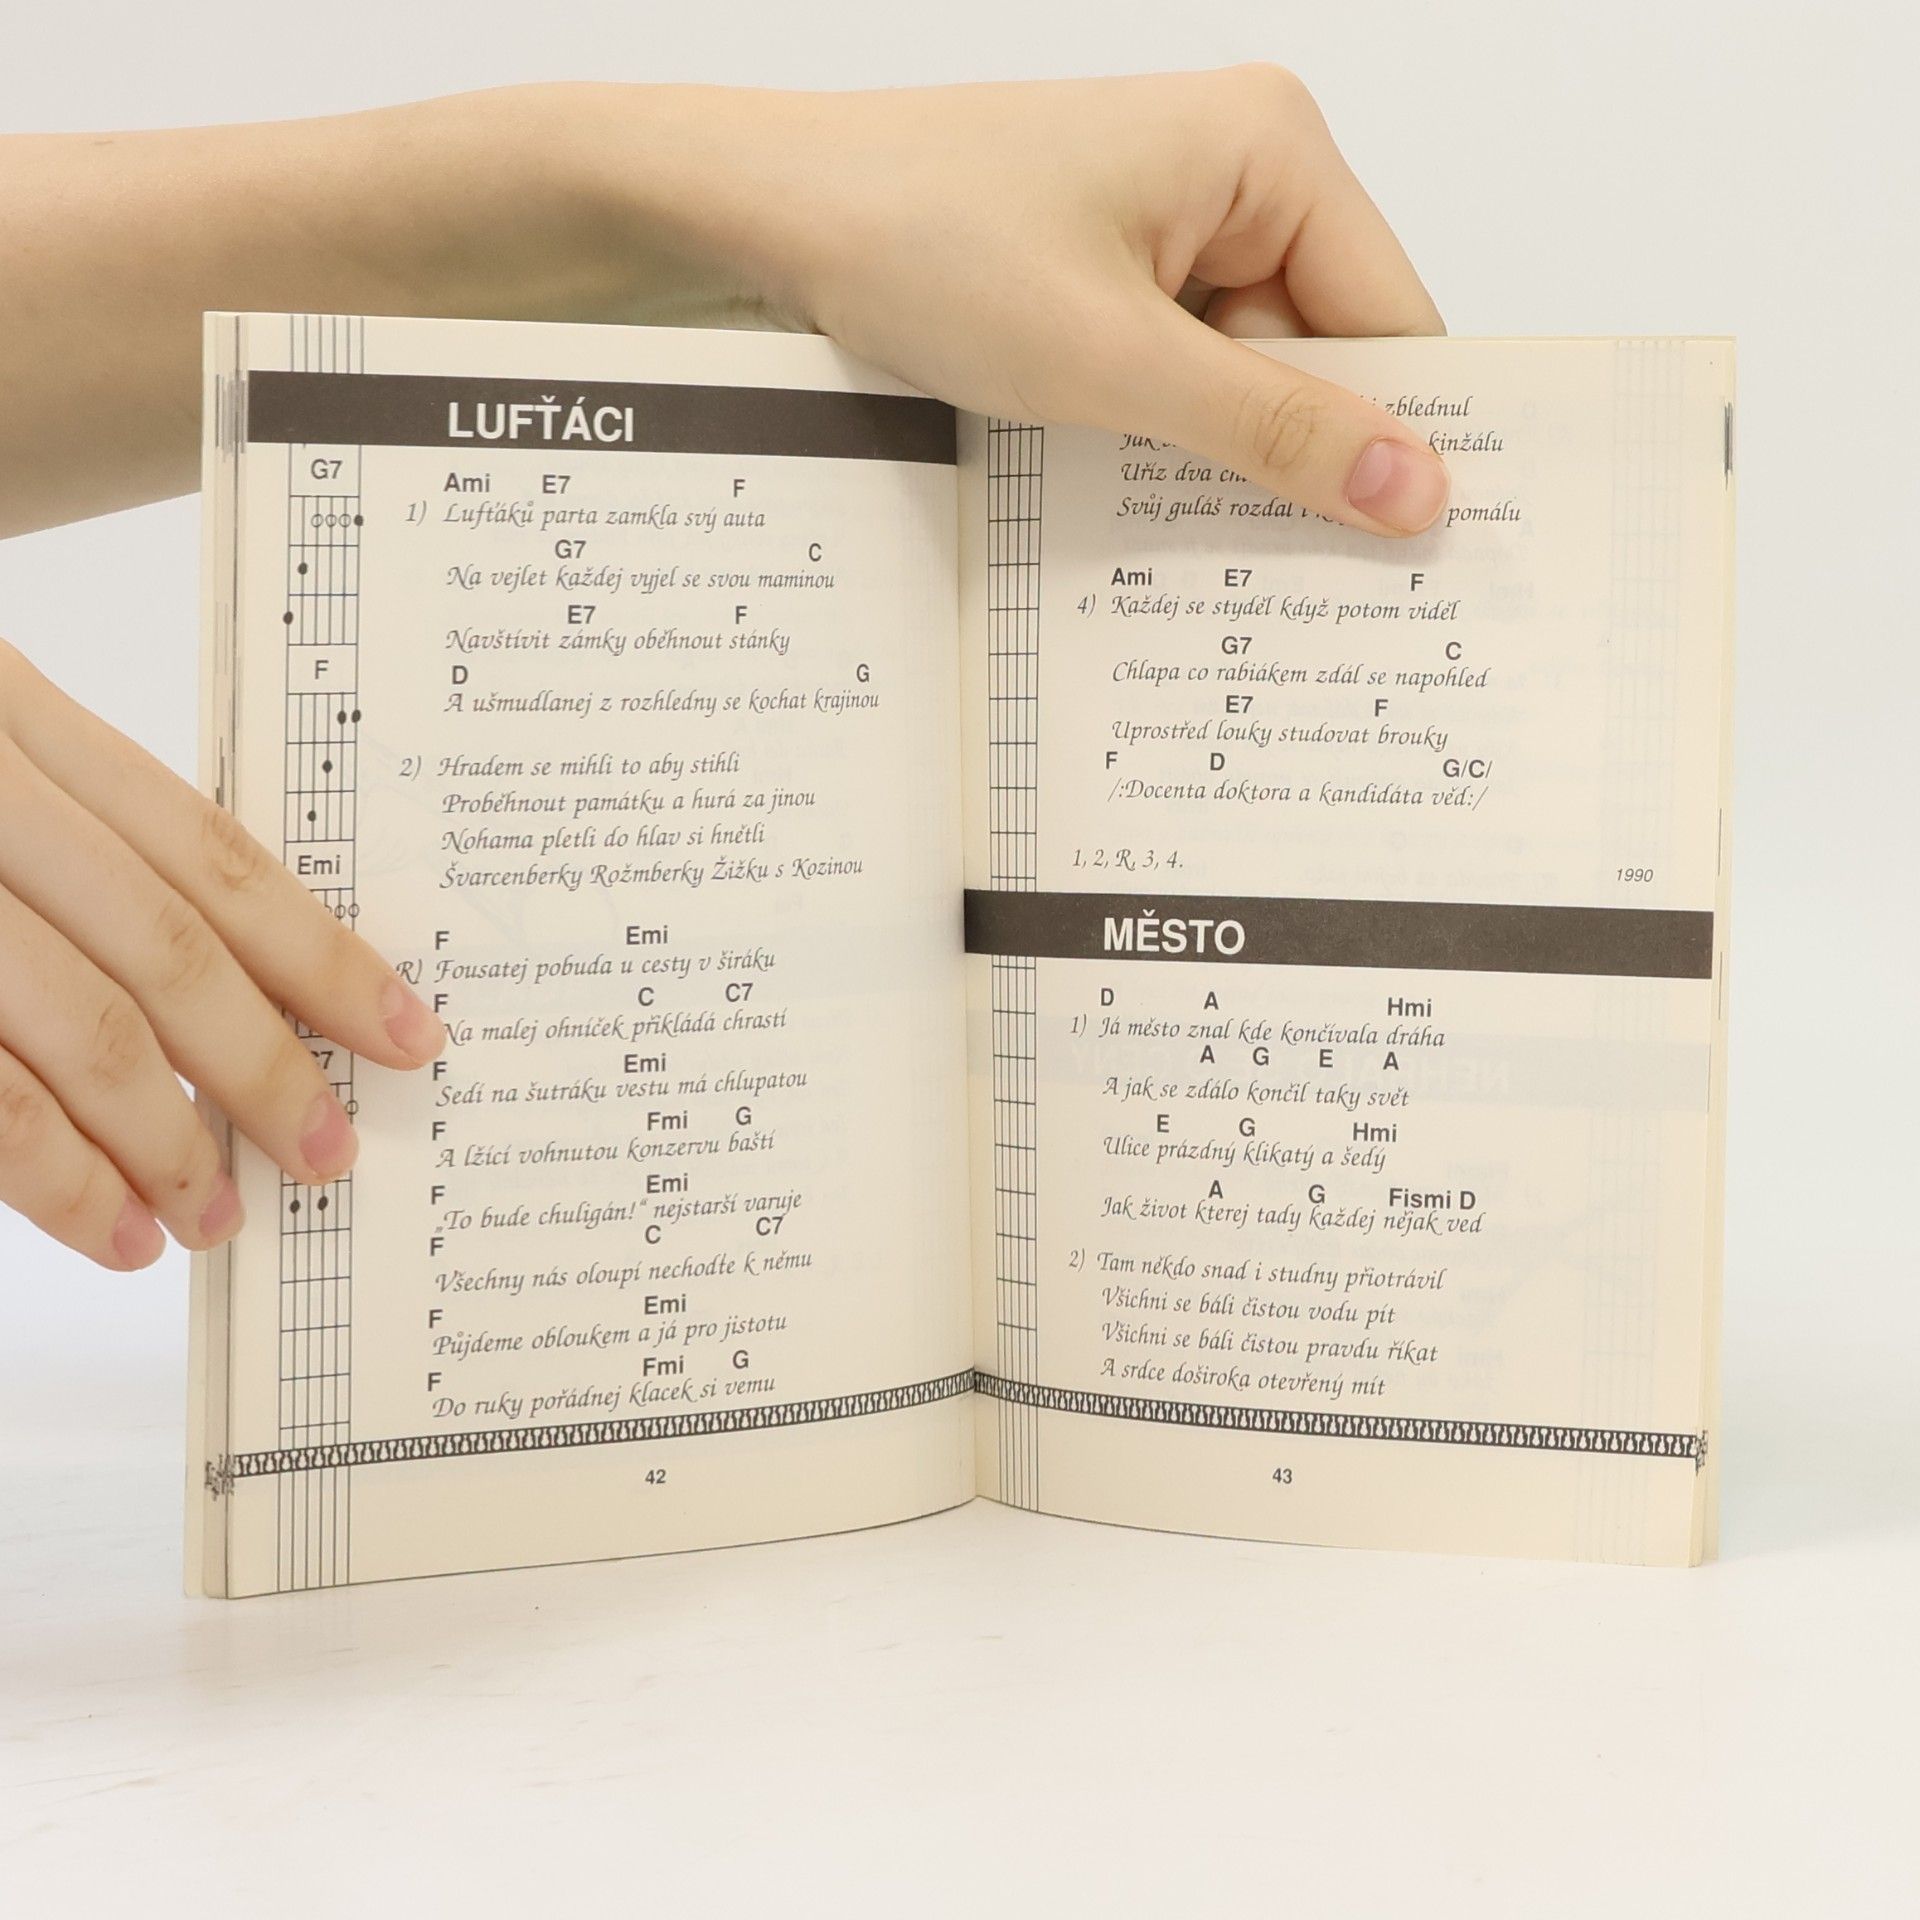 LUFŤÁCI
G7
F
Emi
Ami E7 F
1) Lufťáků parta zamkla svý auta
G7 C
Na vejlet každej vyjel se svou maminou
E7 F
Navštívit zámky oběhnout stánky
D G
A ušmudlanej z rozhledny se kochat krajinou
2) Hradem se mihli to aby stihli
Proběhnout památku a hurá za jinou
Nohama pletli do hlav si hnětli
Švarcenberky Rožmberky Žižku s Kozinou
F Emi
R) Fousatej pobuda u cesty v širáku
F C C7
Na malej ohníček přikládá chrastí
F Emi
Sedí na šutráku vestu má chlupatou
F Fmi G
A lžící vohnutou konzervu baští
F Emi
„To bude chuligán!“ nejstarší varuje
F C C7
Všechny nás oloupí nechoďte k němu
F Emi
Půjdeme obloukem a já pro jistotu
F Fmi G
Do ruky pořádnej klacek si vemu
42
zblednul
kinžálu
Uříz dva
Svůj guláš rozdal pomálu
Ami E7 F
4) Každej se styděl když potom viděl
G7 C
Chlapa co rabiákem zdál se napohled
E7 F
Uprostřed louky studovat brouky
F D G/C/
/:Docenta doktora a kandidáta věd:/
1, 2, R, 3, 4.
1990
MĚSTO
D A Hmi
1) Já město znal kde končívala dráha
A G E A
A jak se zdálo končil taky svět
E G Hmi
Ulice prázdný klikatý a šedý
A G Fismi D
Jak život kterej tady každej nějak ved
2) Tam někdo snad i studny přiotrávil
Všichni se báli čistou vodu pít
Všichni se báli čistou pravdu říkat
A srdce doširoka otevřený mít
43